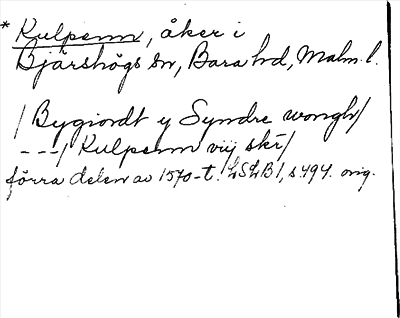 * Kulpenn, åker i
Bjärshögs sn, Bara hd, Malm. l.
/ Bygiordt y Syndre wongh/
---/ Kulpenn viij skr/
förra delen av 1570-t. LSLB 1, s. 494. orig.